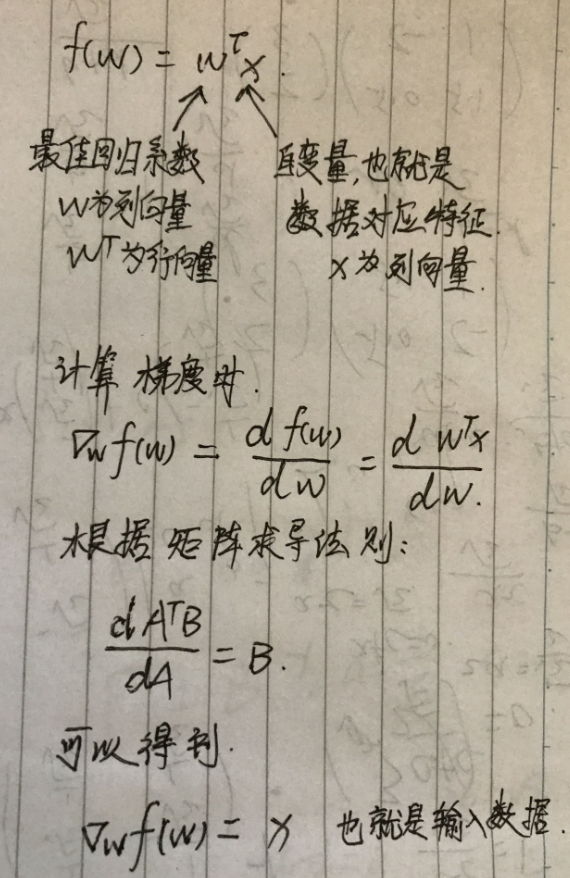 f(w) = wᵀx.
最佳回归系数
w为列向量
wᵀ为行向量
自变量,也就是
数据对应特征.
x为列向量.
计算梯度时.
∇w f(w) = d f(w) / dw = d wᵀx / dw.
根据矩阵求导法则:
dAᵀB / dA = B.
可以得到.
∇w f(w) = x 也就是输入数据.